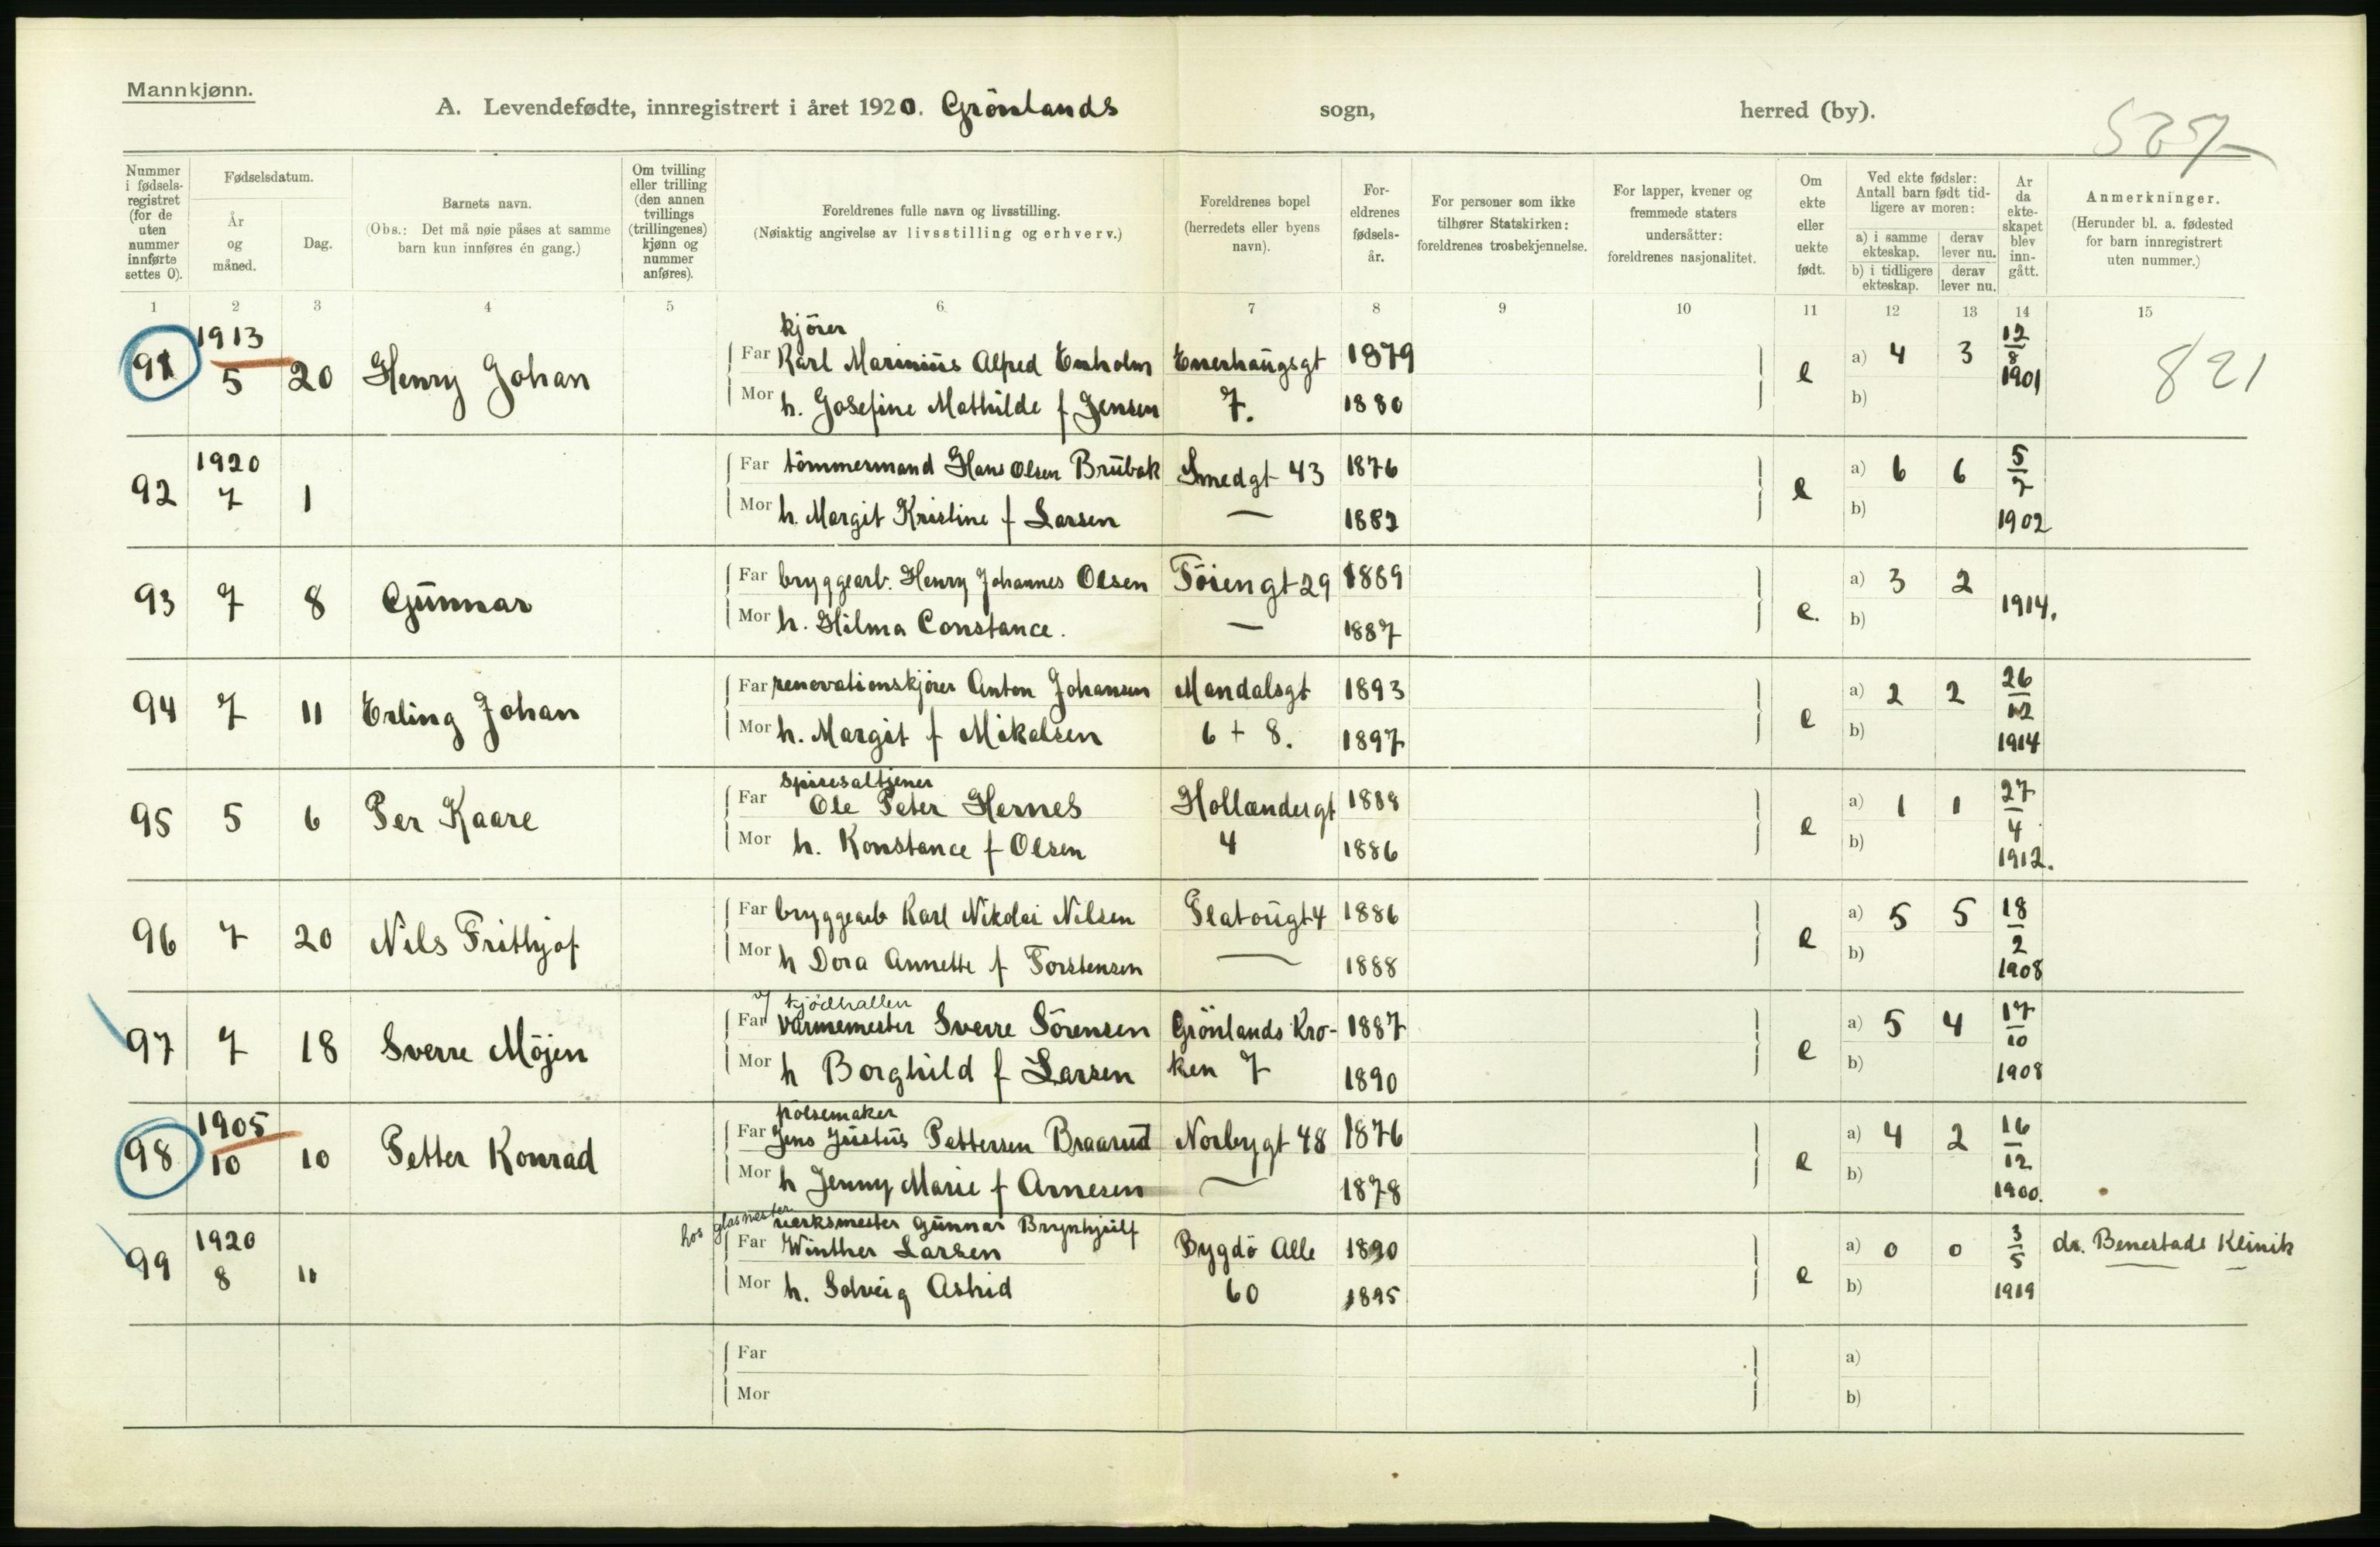 Mannkjønn.
A. Levendefødte, innregistrert i året 1920. Grönlands sogn, herred (by).
Nummer i fødsels-registret (for de uten nummer innførte settes 0).
Fødselsdatum.
År og måned.
Dag.
Barnets navn.
(Obs.: Det må nøie påses at samme barn kun innføres én gang.)
Om tvilling eller trilling (den annen tvillings (trillingenes) kjønn og nummer anføres).
Foreldrenes fulle navn og livsstilling.
(Nøiaktig angivelse av livsstilling og erhverv.)
Foreldrenes bopel
(herredets eller byens navn).
For-eldrenes fødsels-år.
For personer som ikke tilhører Statskirken: foreldrenes trosbekjennelse.
For lapper, kvener og fremmede staters undersåtter: foreldrenes nasjonalitet.
Om ekte eller uekte født.
Ved ekte fødsler: Antall barn født tid-ligere av moren:
a) i samme ekteskap. derav lever nu.
b) i tidligere ekteskap. derav lever nu.
År da ekte-skapet blev inn-gått.
Anmerkninger.
(Herunder bl. a. fødested for barn innregistrert uten nummer.)
1 2 3 4 5 6 7 8 9 10 11 12 13 14 15
91 1913 5 20 Henry Johan
kjörer
Far Karl Marinius Alfred Enholm Enerhaugsgt 1879
Mor h. Josefine Mathilde f Jensen 7. 1880
e a) 4 3 b) 12/8 1901 821
92 1920 7 1
Far tömmermand Hans Olsen Brubak Smedgt 43 1876
Mor h. Margit Kristine f Larsen — 1882
e a) 6 6 b) 5/7 1902
93 7 8 Gunnar
Far bryggearb. Henry Johannes Olsen Töiengt 29 1889
Mor h. Hilma Constance. — 1887
e. a) 3 2 b) 1914.
94 7 11 Erling Johan
Far renovationskjörer Anton Johansen Mandalsgt 1893
Mor h. Margit f Mikalsen 6 + 8. 1897
e a) 2 2 b) 26/12 1914
95 5 6 Per Kaare
spisesaltjener
Far Ole Peter Hernes Hollændergt 1888
Mor h. Konstance f Olsen 4 1886
e a) 1 1 b) 27/4 1912.
96 7 20 Nils Frithjof
Far bryggearb Karl Nikolai Nilsen Platougt 4 1886
Mor h Dora Annette f Torstensen — 1888
e a) 5 5 b) 18/2 1908
97 7 18 Sverre Möjen
v kjödhallen
Far varmemester Sverre Sörensen Grönlands Kro- 1887
Mor h Borghild f Larsen ken 7 1890
e a) 5 4 b) 17/10 1908
98 1905 10 10 Petter Konrad
pölsemaker
Far Jens Justus Pettersen Braarud Norbygt 48 1876
Mor h Jenny Marie f Arnesen — 1878
e a) 4 2 b) 16/12 1900.
99 1920 8 11
hos glasmester
verksmester Gunnar Brynhjulf
Far Winther Larsen Bygdö Alle 1890
Mor h. Solveig Astrid 60 1895
e a) 0 0 b) 3/5 1919 dr. Benestads Klinik
Far a)
Mor b)